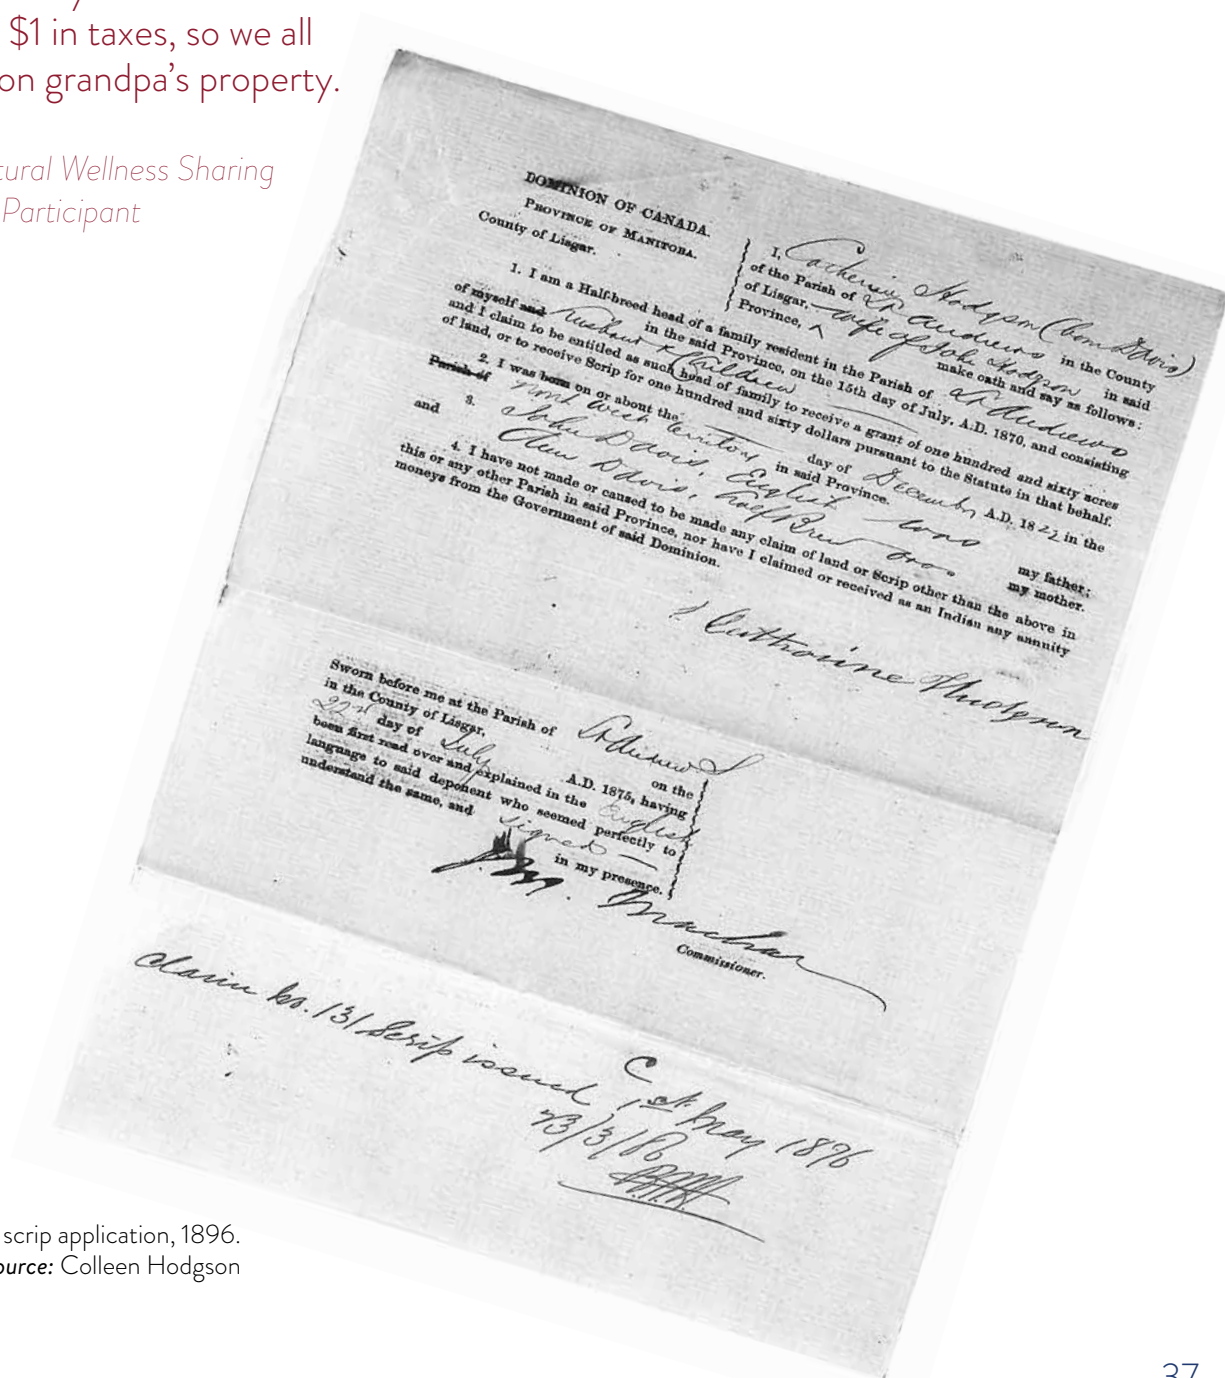 $1 in taxes, so we all
on grandpa's property.
tural Wellness Sharing
Participant
DOMINION OF CANADA.
PROVINCE OF MANITOBA.
County of Lisgar.
I, Catherine Hodgson (born Davis)
of the Parish of St Andrews in the County
of Lisgar, wife of John Hodgson in said
Province, make oath and say as follows:
1. I am a Half-breed head of a family resident in the Parish of St Andrews
in the said Province, on the 15th day of July, A.D. 1870, and consisting
of myself and husband & Children
and I claim to be entitled as such head of family to receive a grant of one hundred and sixty acres
of land, or to receive Scrip for one hundred and sixty dollars pursuant to the Statute in that behalf.
2. I was born on or about the day of December A.D. 18 in the
Parish of North West Territory in said Province.
3. John Davis, English was my father;
and Ann Davis, half Breed was my mother.
4. I have not made or caused to be made any claim of land or Scrip other than the above in
this or any other Parish in said Province, nor have I claimed or received as an Indian any annuity
moneys from the Government of said Dominion.
Catherine Hudgson
Sworn before me at the Parish of St Andrews
in the County of Lisgar, on the
22nd day of July A.D. 1875, having
been first read over and explained in the English
language to said deponent who seemed perfectly to
understand the same, and signed
in my presence.
J. M. Machar
Commissioner.
C
Claim No. 131 Scrip issued 1st May 1876
23/3/
scrip application, 1896.
ource: Colleen Hodgson
37